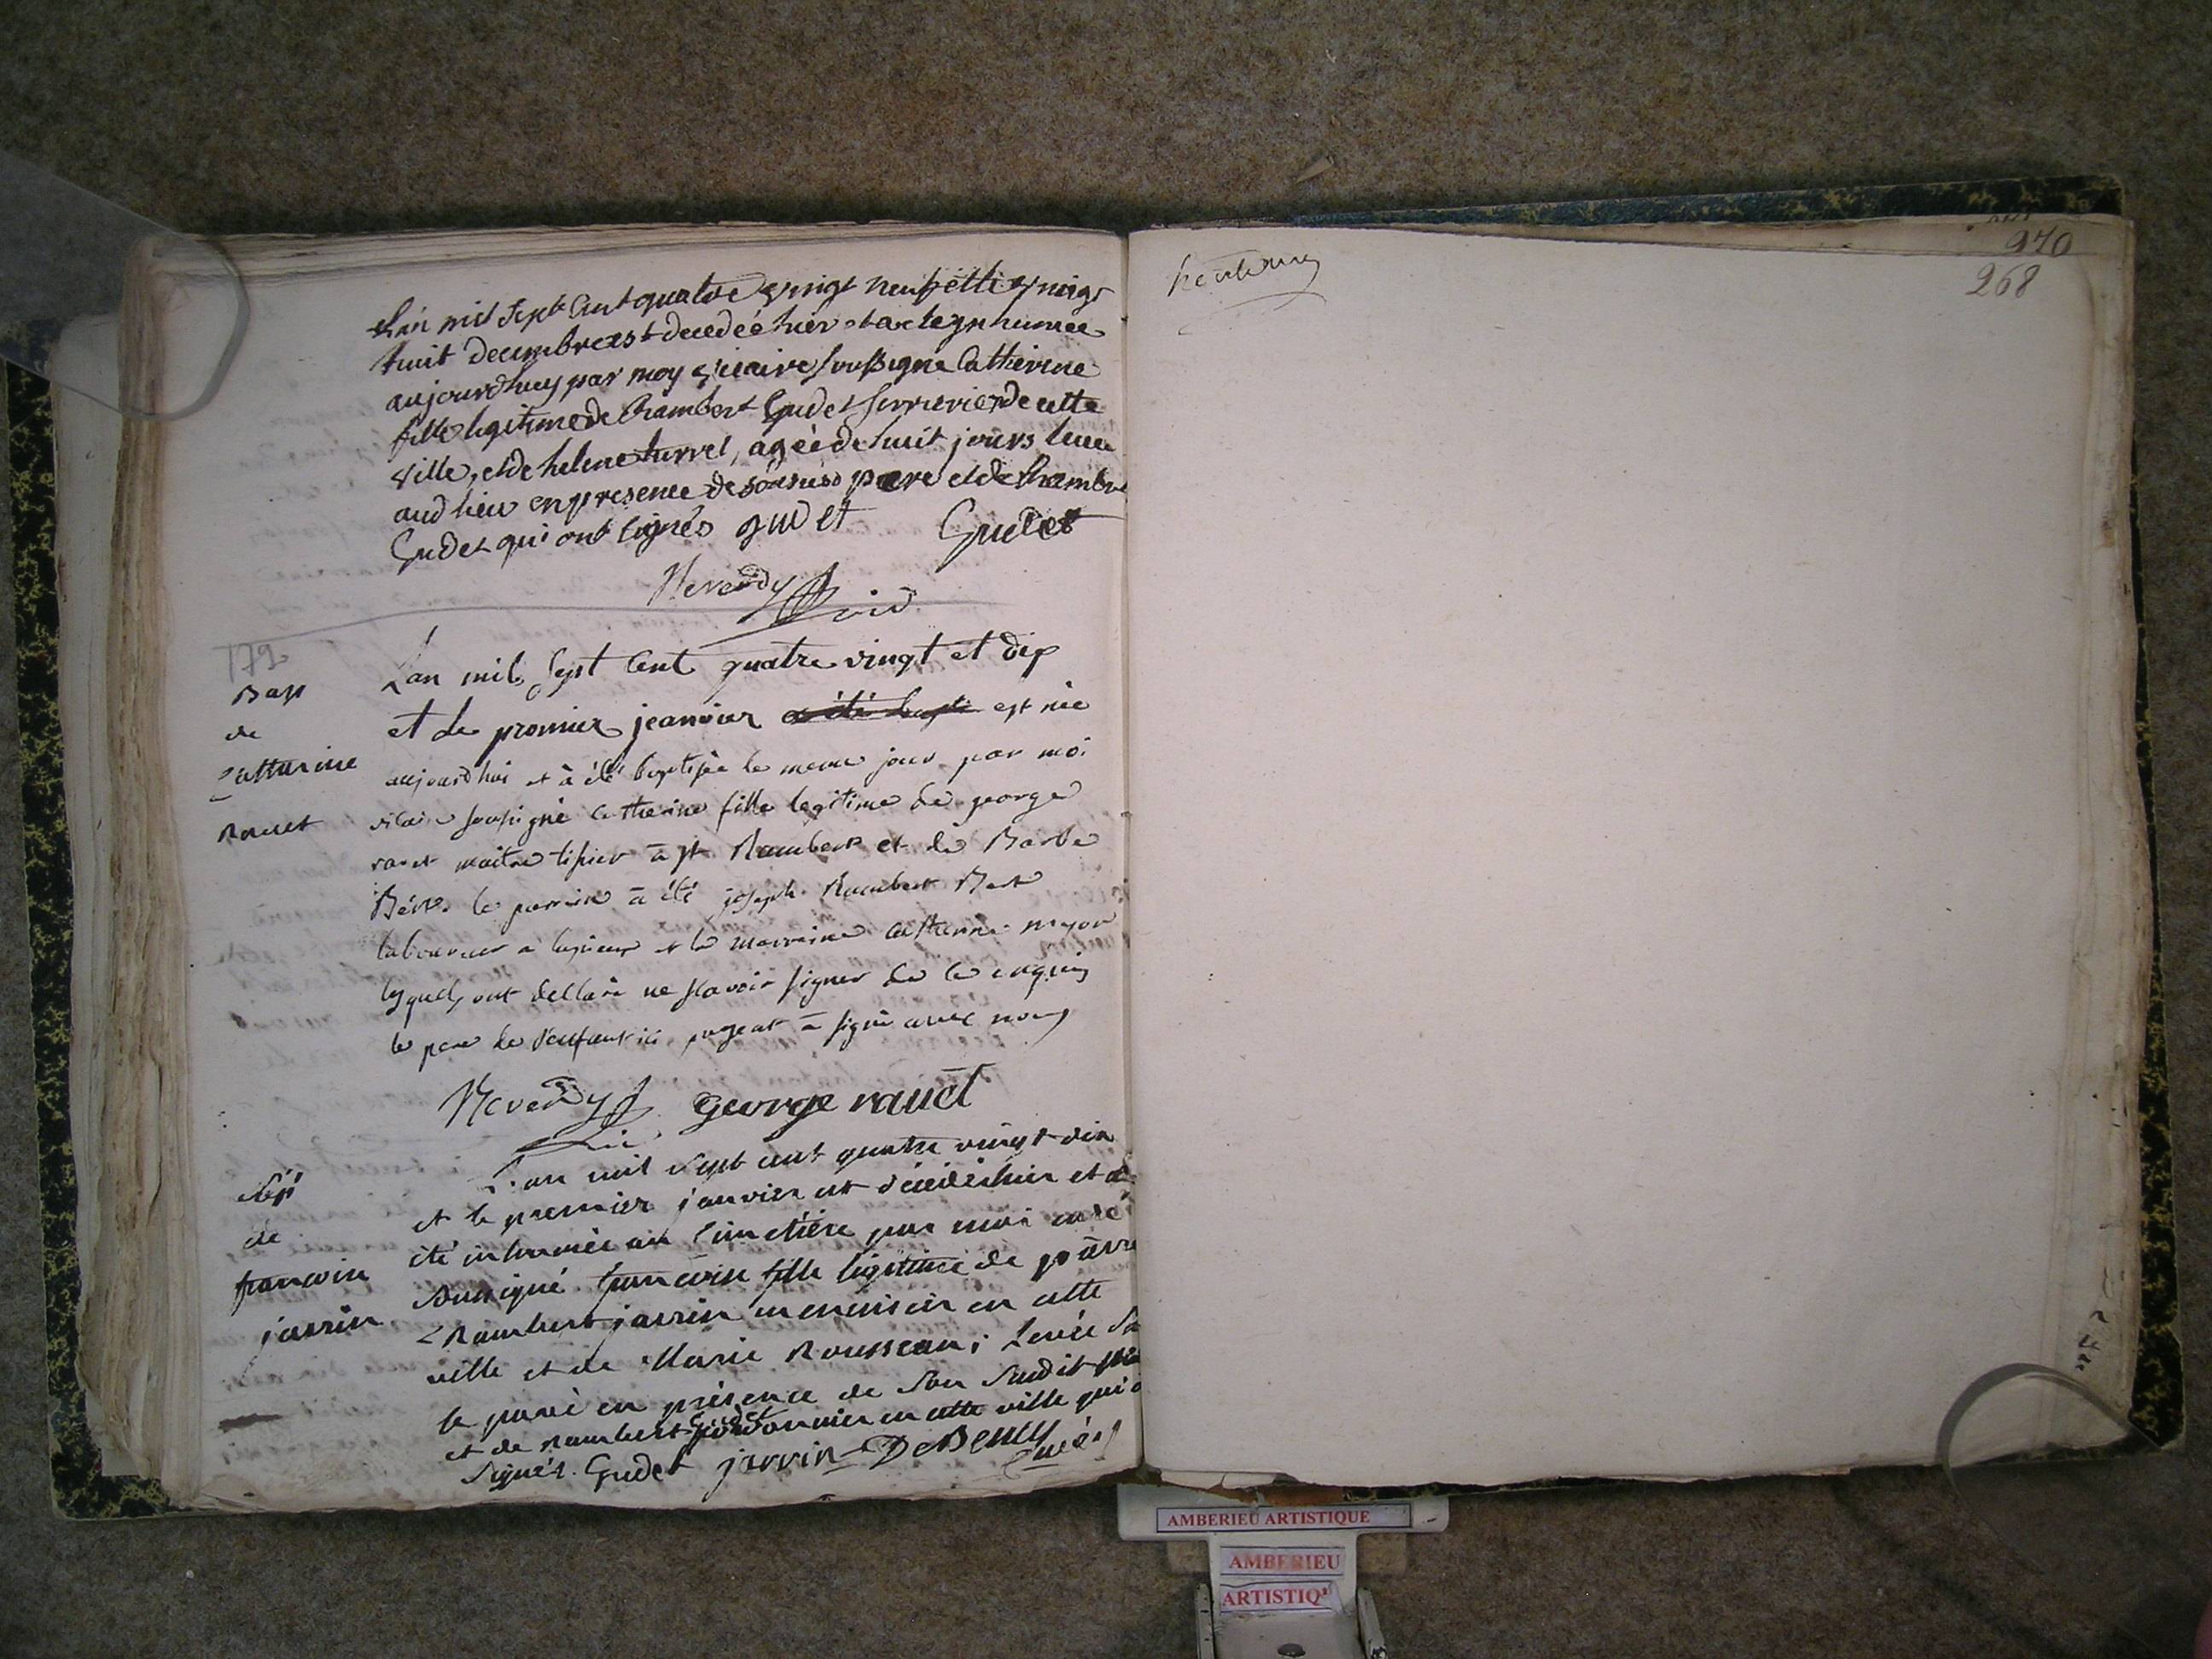 Lan mil sept Cent quatre vingt neuf et le vingt
huit decembre est decedée hier et a eté inhumée
aujourdhuy par moy vicaire soussigné Catherine
fille legitime de Rambert Gudet serrurier de cette
ville, et de helene turrel, agée de huit jours levée
aud lieu en presence de sondit pere et de Rambert
Gudet qui ont signés gudet Gudet
Reverdy vic
179
Bap
de
Catturine
Rauet
Lan mil sept Cent quatre vingt et dix
et le premier jeanvier a été bapti est née
aujourdhui et à été baptisée le meme jour par moi
vicaire soussigné Catherine fille legitime de george
rauet maitre tisier à st Rambert et de Barbe
le parrain à été joseph Rambert
laboureur a et la marraine Catherine mejor
lesquels ont dellaré ne scavoir signer de ce enquis
le pere de l'enfant ici present à signé avec nous
Reverdy vic george rauet
Sep
de
francoise
jarrin
L'an mil sept cent quatre vingt dix
et le premier janvier est décédée hier et a
été inhumée au Cimetière par moi curé
soussigné francoise fille légitime de pierre
Rambert jarrin menuisier en cette
ville et de Marie Rousseau; Levée sur
le pavé en présence de son susdit père
et de rambert Gudet cordonnier en cette ville qui o
signés. Gudet jarrin DeBeney Curé
970
268
AMBERIEU ARTISTIQUE
AMBERIEU
ARTISTIQ